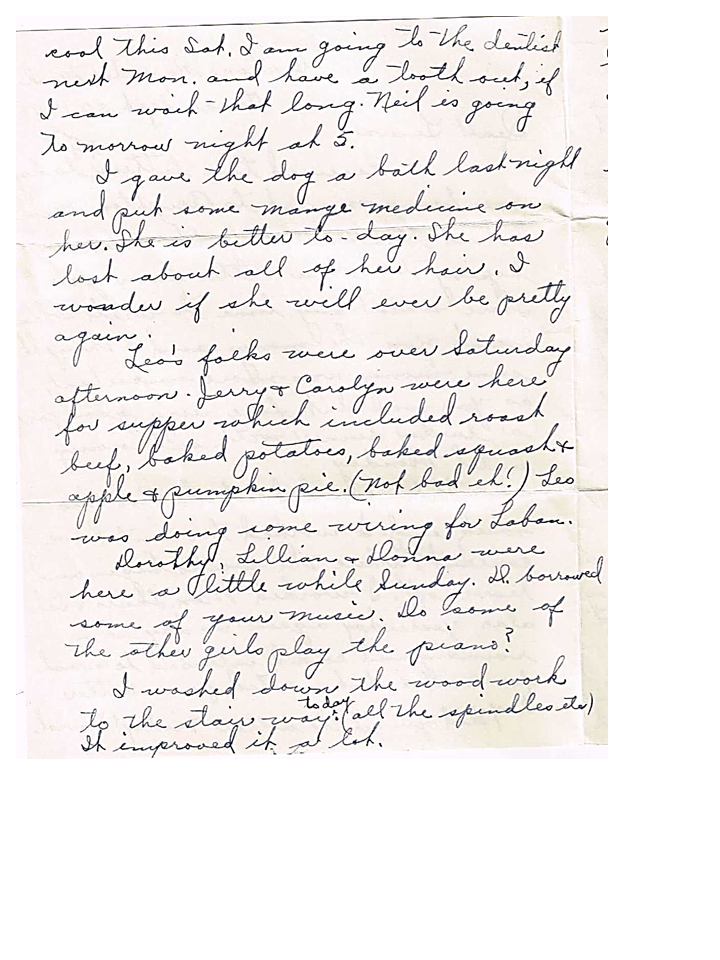 cool this Sat. I am going to the dentist
next Mon. and have a tooth out, if
I can wait that long. Neil is going
to morrow night at 5.
I gave the dog a bath last night
and put some mange medicine on
her. She is better to-day. She has
lost about all of her hair. I
wonder if she will ever be pretty
again.
Leo's folks were over Saturday
afternoon. Jerry & Carolyn were here
for supper which included roast
beef, baked potatoes, baked squash &
apple & pumpkin pie. (Not bad eh!) Leo
was doing some wiring for Laban.
Dorothy, Lillian & Donna were
here a little while Sunday. D. borrowed
some of your music. Do some of
the other girls play the piano?
I washed down the wood work
to the stair way today. (all the spindles etc)
It improved it a lot.